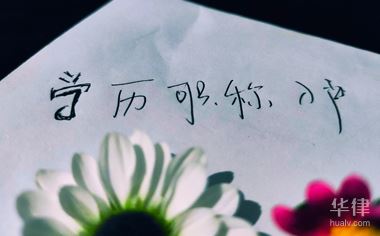 学历职称
华律
hualv.com